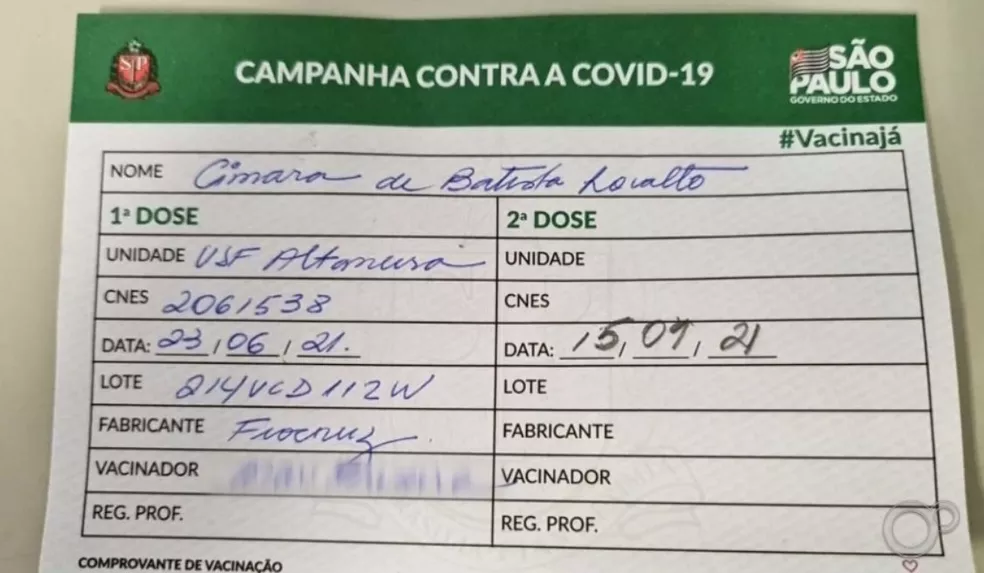 SP
SÃO
CAMPANHA CONTRA A COVID-19
PAULO
GOVERNO DO ESTADO
#Vacinajá
NOME Cimara de Batista Lovalto
1ª DOSE 2ª DOSE
UNIDADE USF Altaneira UNIDADE
CNES 2061538 CNES
DATA: 23/06/21. DATA: 15/09/21
LOTE 214VCD112W LOTE
FABRICANTE Fiocruz FABRICANTE
VACINADOR VACINADOR
REG. PROF. REG. PROF.
COMPROVANTE DE VACINAÇÃO